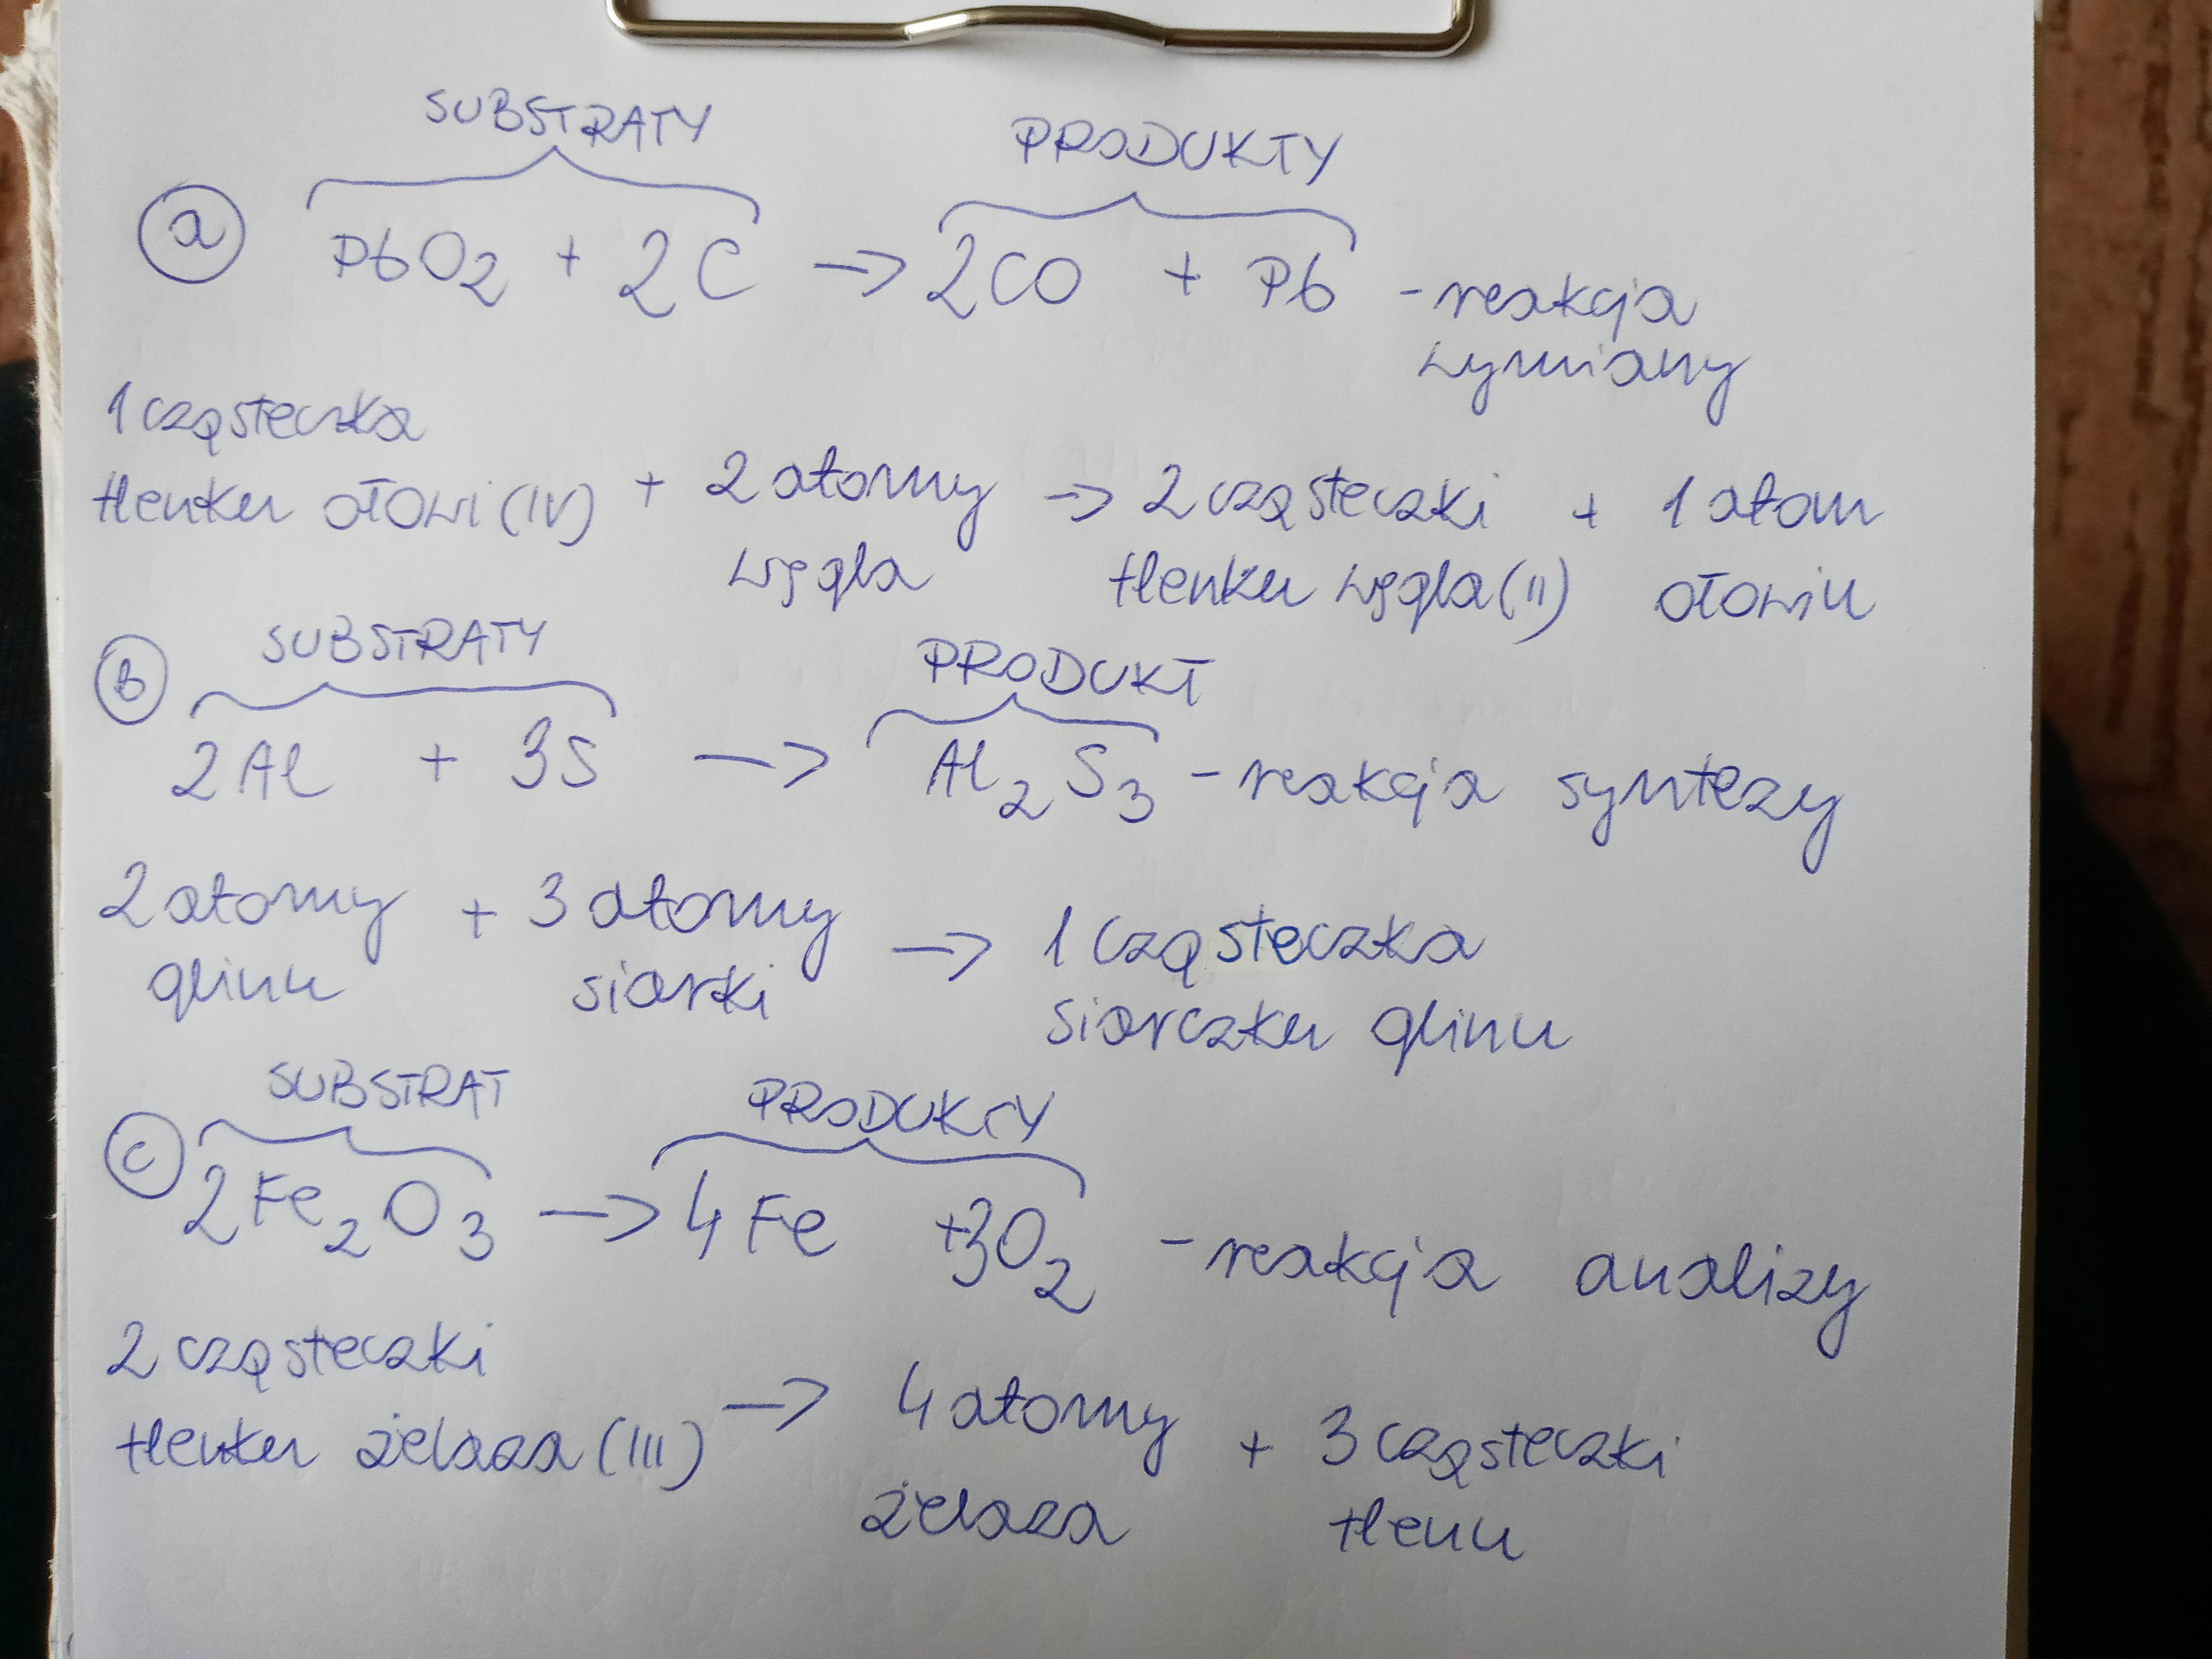 SUBSTRATY PRODUKTY
a PbO2 + 2C → 2CO + Pb - reakcja
wymiany
1 cząsteczka
tlenku ołowi (IV) + 2 atomy → 2 cząsteczki + 1 atom
węgla tlenku węgla (II) ołowiu
SUBSTRATY PRODUKT
b 2Al + 3S → Al2S3 - reakcja syntezy
2 atomy + 3 atomy → 1 cząsteczka
glinu siarki siarczku glinu
SUBSTRAT PRODUKTY
c 2Fe2O3 → 4Fe + 3O2 - reakcja analizy
2 cząsteczki
tlenku żelaza (III) → 4 atomy + 3 cząsteczki
żelaza tlenu